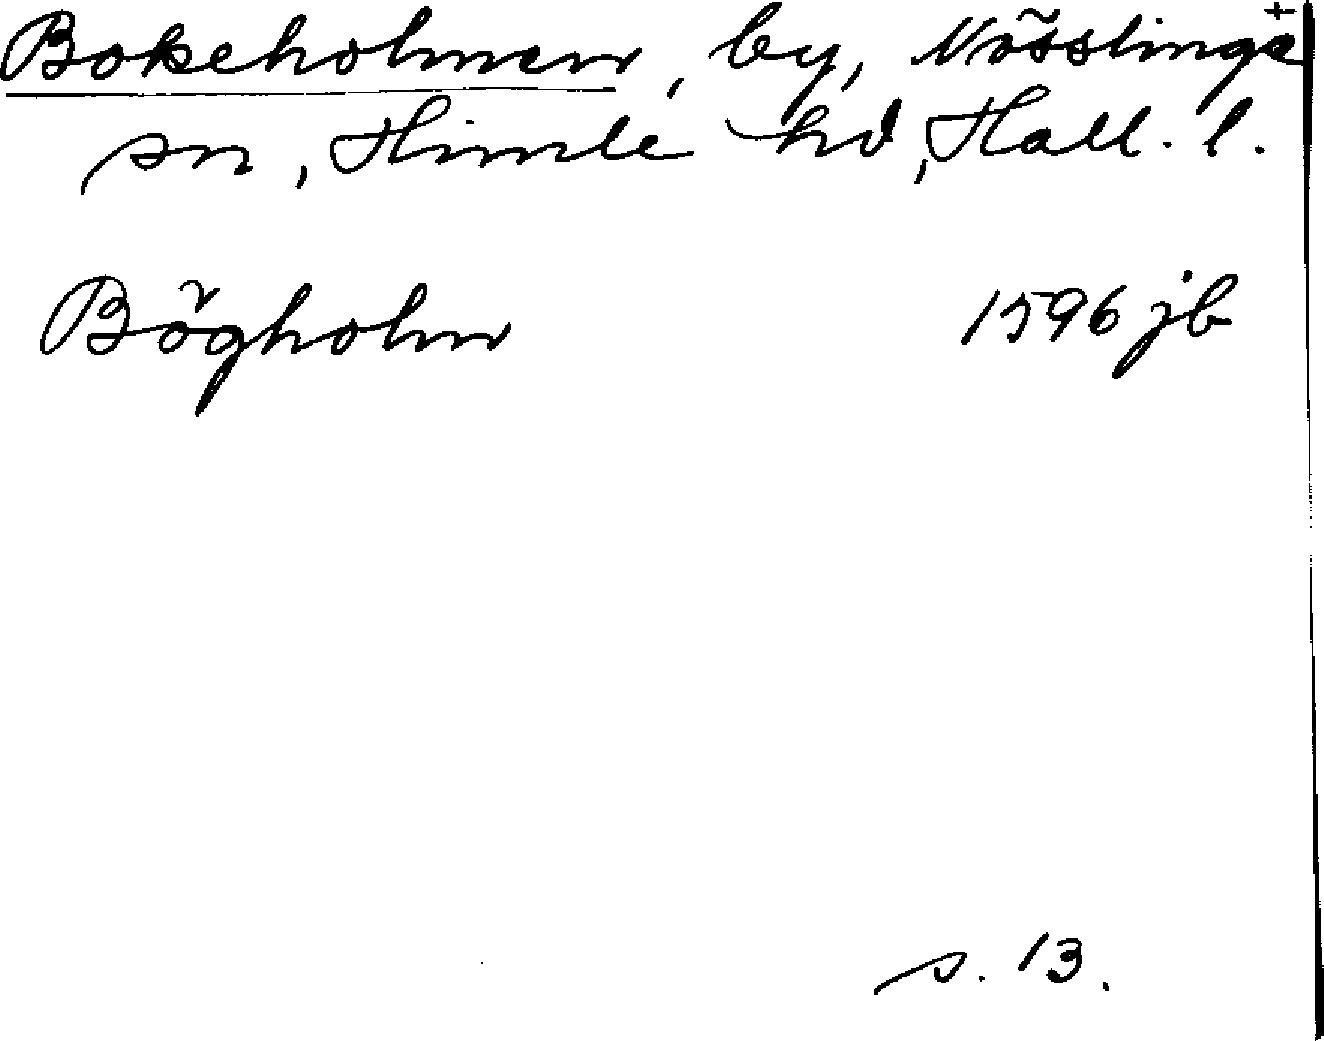 Bokeholmen, by, Nösslinge +
sn, Himle hd, Hall. l.
Bögholm 1596 jb
s. 13.